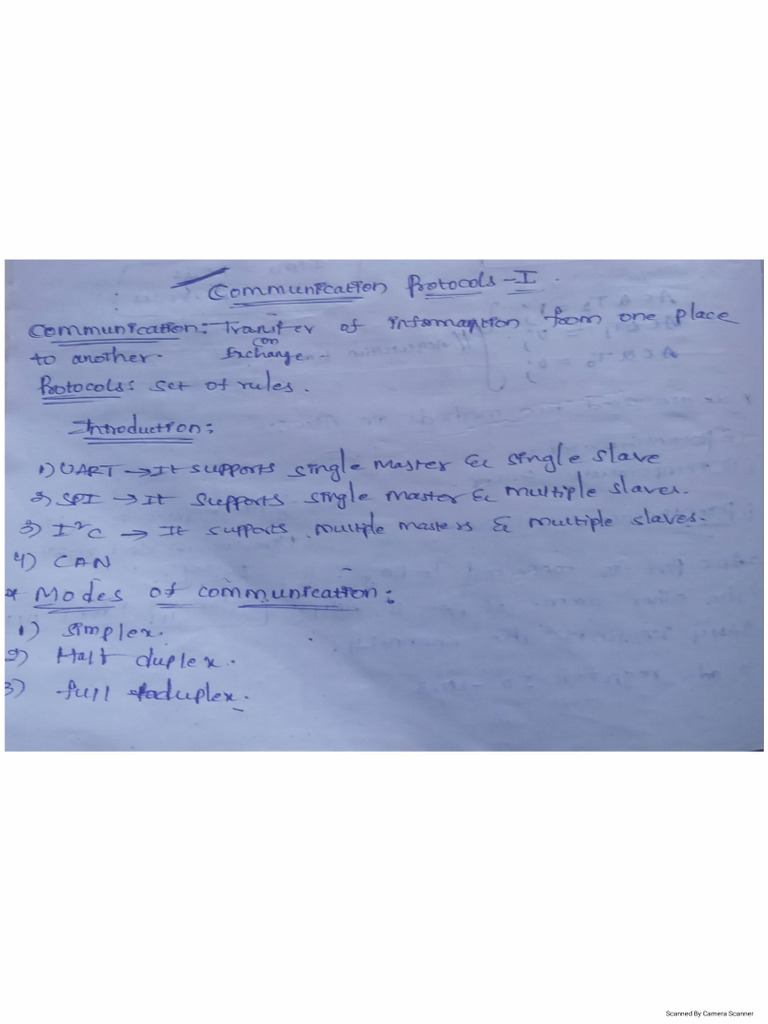 Communication Protocols-I.
Communication: Transfer of information from one place
(or)
to another. Exchange
Protocols: set of rules.
Introduction:
1) UART → It supports single master & single slave
2) SPI → It supports single master & multiple slaves.
3) I²C → It supports multiple masters & multiple slaves.
4) CAN
* Modes of communication:
1) Simplex.
2) Half duplex.
3) full duplex.
Scanned By Camera Scanner